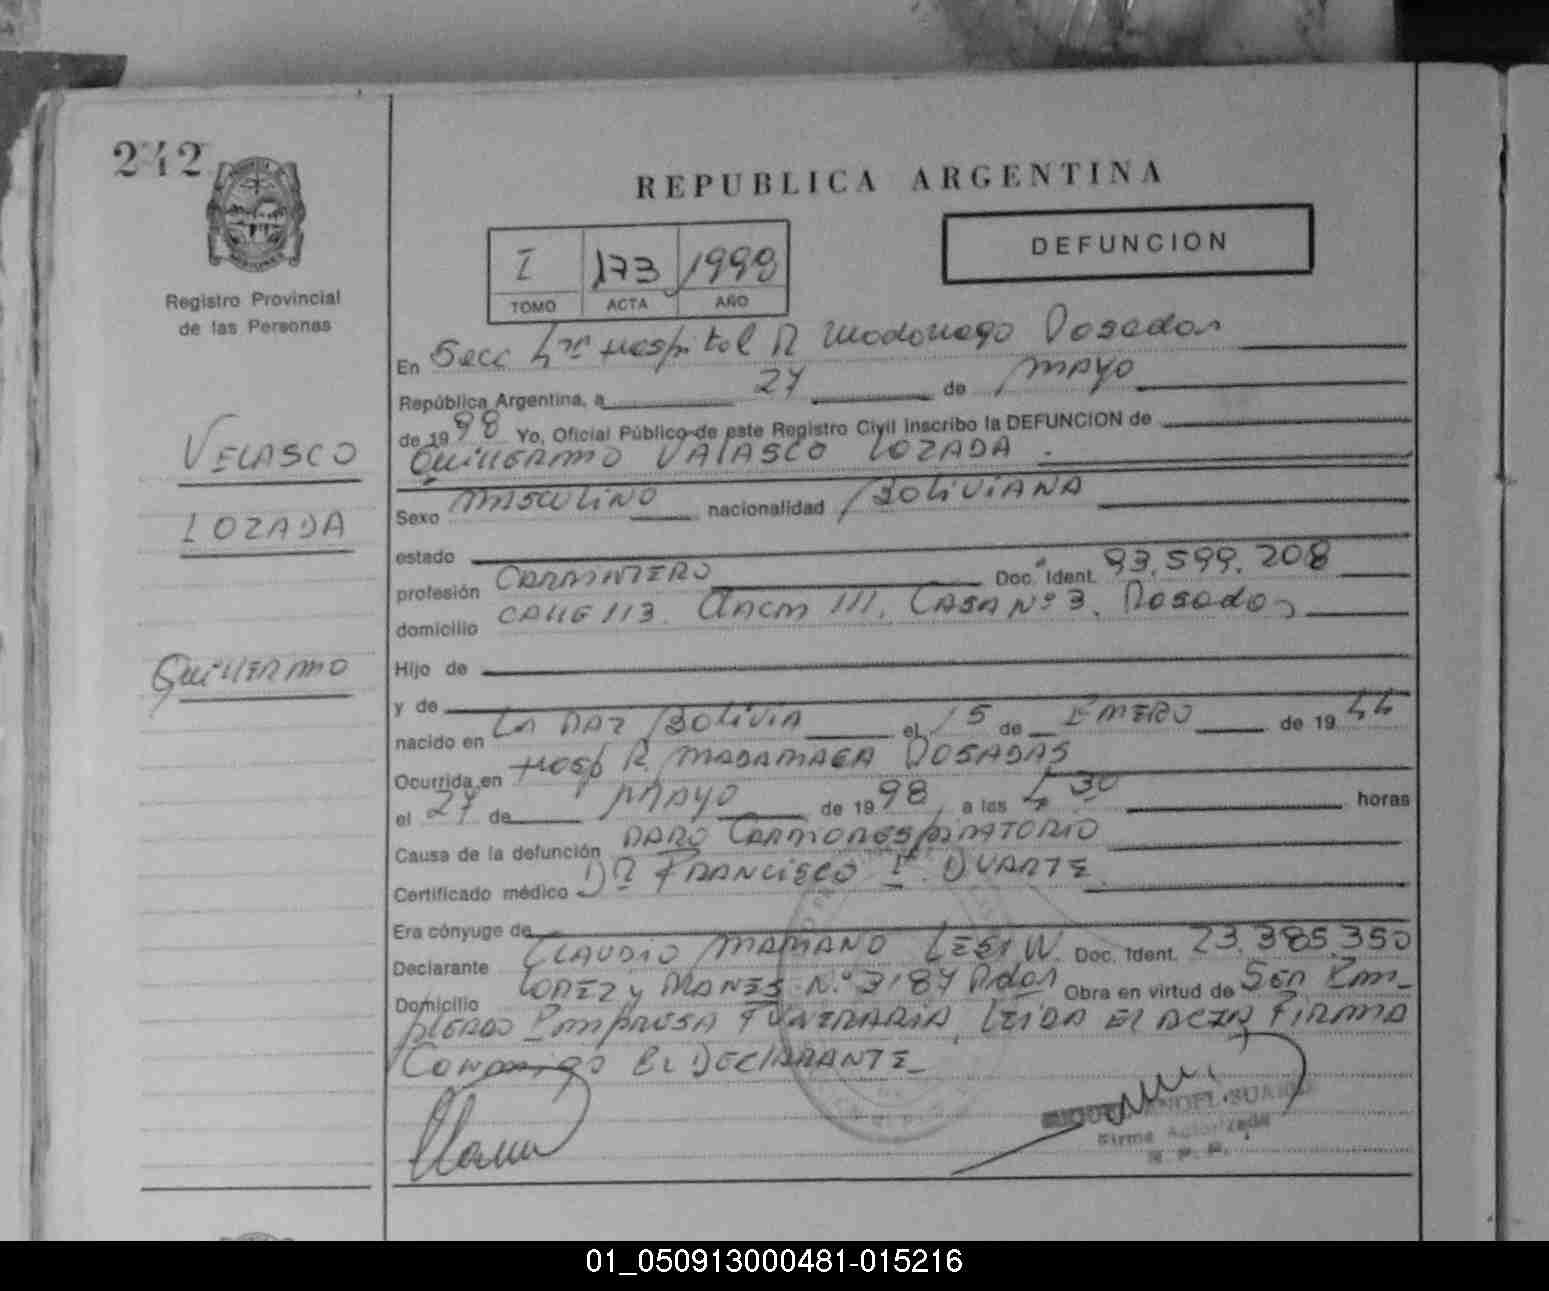 242
REPUBLICA ARGENTINA
DEFUNCION
I 173 1998
TOMO ACTA AÑO
Registro Provincial
de las Personas
En Secc 4ta Hospital R Madariaga Posadas
República Argentina, a 27 de MAYO
de 1998 Yo, Oficial Público de este Registro Civil inscribo la DEFUNCION de
GUILLERMO VALASCO LOZADA.
VELASCO
LOZADA
GUILLERMO
Sexo MASCULINO nacionalidad BOLIVIANA
estado
profesión CARPINTERO Doc. Ident. 93.599.208
domicilio CALLE 113. CHACRA 111. CASA Nº 3. Posadas
Hijo de
y de
nacido en LA PAZ BOLIVIA el 15 de ENERO de 1944
Ocurrida en HOSP R MADARIAGA POSADAS
el 27 de MAYO de 1998 a las 4 30 horas
Causa de la defunción PARO CARDIORESPIRATORIO
Certificado médico DR FRANCISCO DUARTE
Era cónyuge de
Declarante CLAUDIO MARIANO Doc. Ident. 23.385.350
Domicilio LOPEZ y PLANES N.º 3187 Pdas Obra en virtud de SER EM-
PLEADO EMPRESA FUNERARIA, LEIDA EL ACTA FIRMA
CONMIGO EL DECLARANTE
Firma Autorizada
R. P. P.
01_050913000481-015216